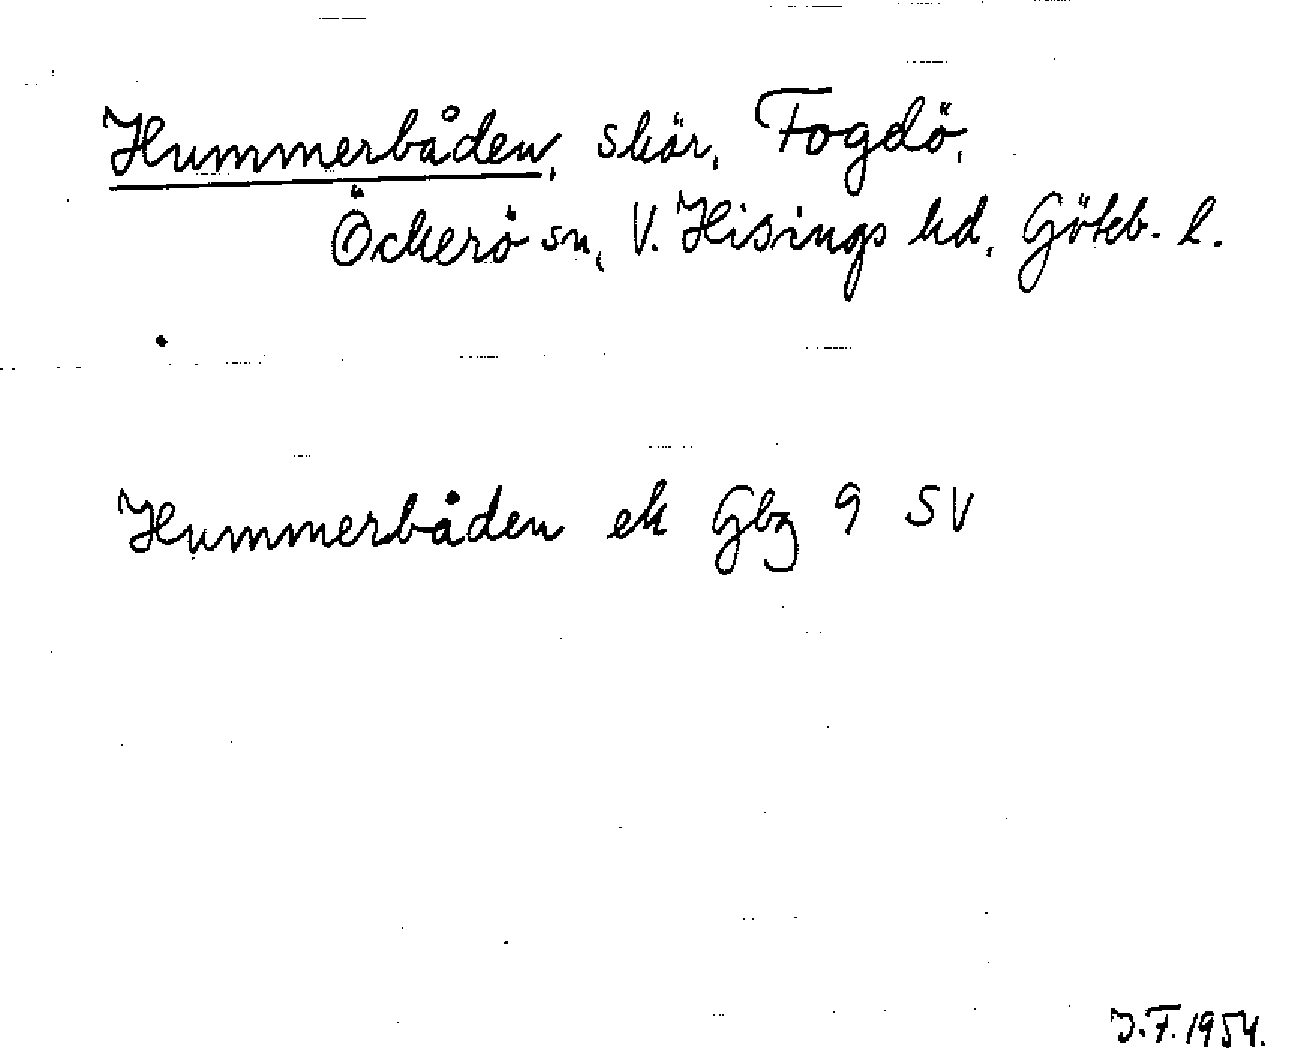 Hummerbåden, skär, Fogdö,
Öckerö sn, V. Hisings hd, Göteb. l.
Hummerbåden ek Gbg 9 SV
J.F. 1954.